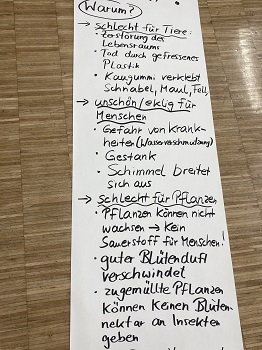 Warum?
→ schlecht für Tiere:
• Zerstörung des
Lebensraums
• Tod durch gefressenes
Plastik
• Kaugummi verklebt
Schnabel, Maul, Fell,
→ unschön/eklig für
Menschen
• Gefahr von Krank-
heiten (Wasserverschmutzung)
• Gestank
• Schimmel breitet
sich aus
→ schlecht für Pflanzen
• Pflanzen können nicht
wachsen → Kein
Sauerstoff für Menschen!
• guter Blütenduft
verschwindet
• zugemüllte Pflanzen
können keinen Blüten-
nektar an Insekten
geben